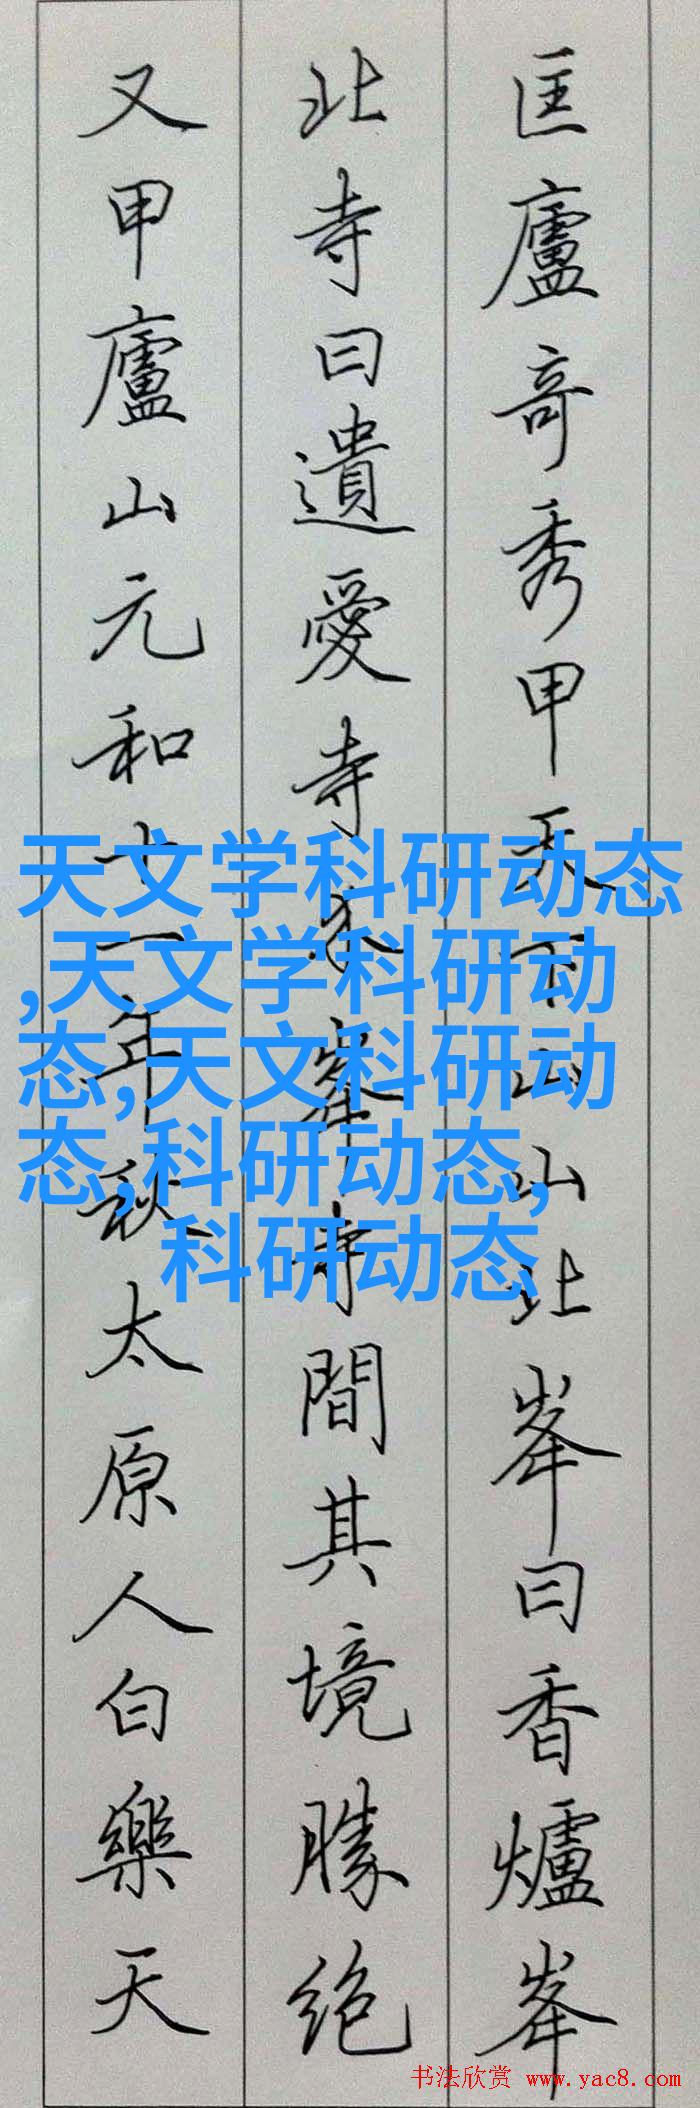 匡廬奇秀甲天下山山北峯曰香爐峯
北寺曰遺愛寺介峯寺間其境勝絶
又甲廬山元和十一年秋太原人白樂天
天文学科研动态
,天文学科研动
态,天文科研动
态,科研动态,
科研动态
书法欣赏 www.yac8.com